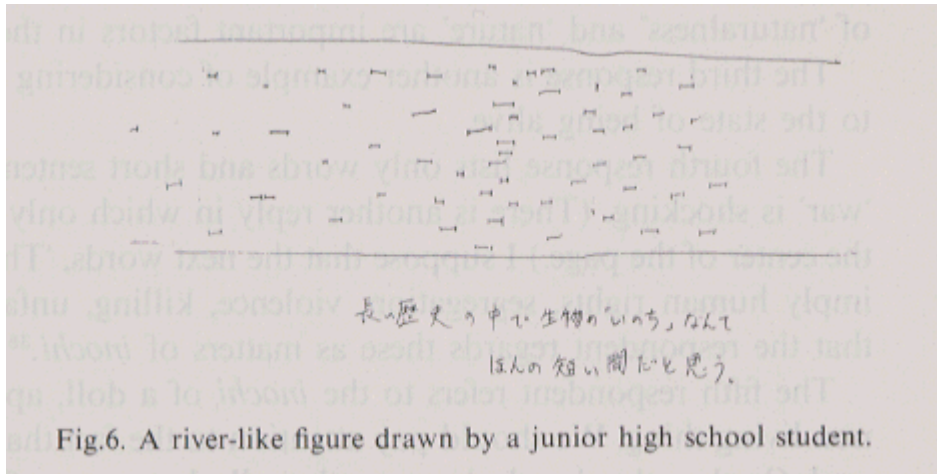 長い歴史の中で生物の「いのち」なんて
ほんの短い間だと思う。
Fig.6. A river-like figure drawn by a junior high school student.